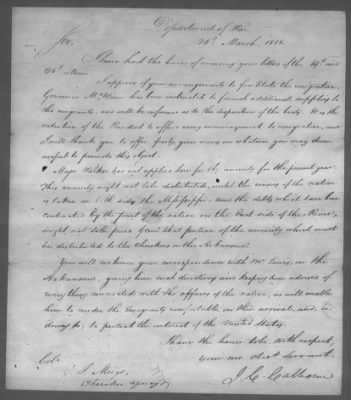 Department of War
26th March, 1818.
Sir,
I have had the honor of receiving your letters of the 19th and
26th
I approve of your arrangements to facilitate the emigration
Governor McMinn has been instructed to furnish additional supplies to
the emigrants, and will be informed as to the disposition of the boats. It is the
intention of the President to offer every encouragement to emigration, and
I will thank you to offer freely your views on whatever you may deem
useful to promote this object.
Major Walker has not applied here for the annuity for the present year.
This annuity ought not to be distributed, until the census of the nation
is taken on both sides the Mississippi. And the debts which have been
contracted by the part of the nation on the East side of the River
ought not to be paid from that portion of the annuity which must
be distributed to the Cherokees on the Arkansaw.
You will continue your correspondence with Mr. Lewis, on the
Arkansaw, giving him such directions and keeping him advised of
everything connected with the affairs of the nation, as will enable
him to render the emigrants comfortable on their arrival, and, in
doing so, to protect the interest of the United States.
I have the honor to be, with respect,
your mo. obdt. servant.
J. C. Calhoun
Colo.
J. Meigs,
Cherokee agency